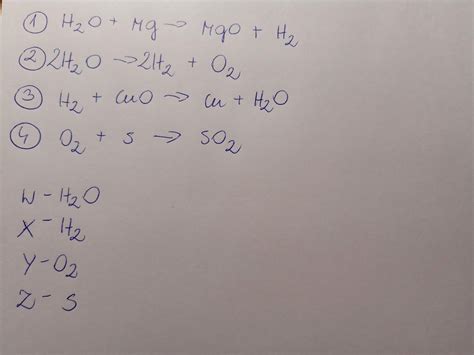 ① H₂O + Mg → MgO + H₂
② 2H₂O → 2H₂ + O₂
③ H₂ + CuO → Cu + H₂O
④ O₂ + S → SO₂
W - H₂O
X - H₂
Y - O₂
Z - S